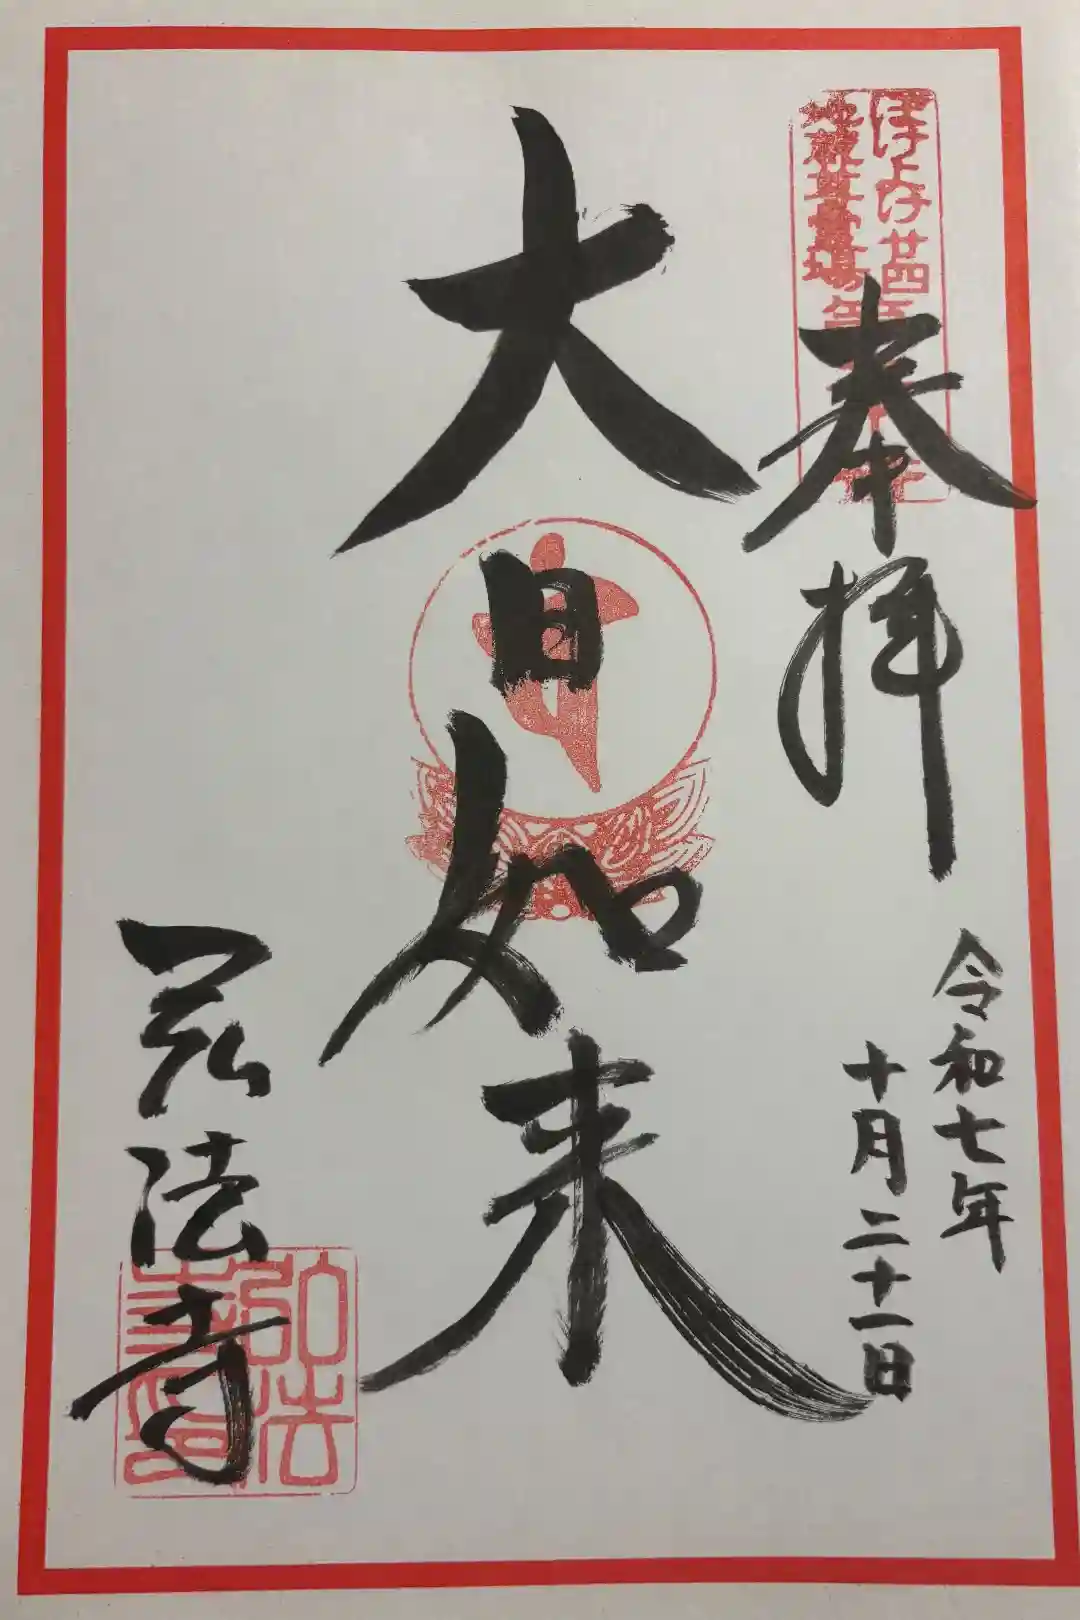 奉拝
令和七年
十月二十一日
大日如来
弘法寺
ぼけよけ廿四
地蔵尊霊場
弘法
寺印